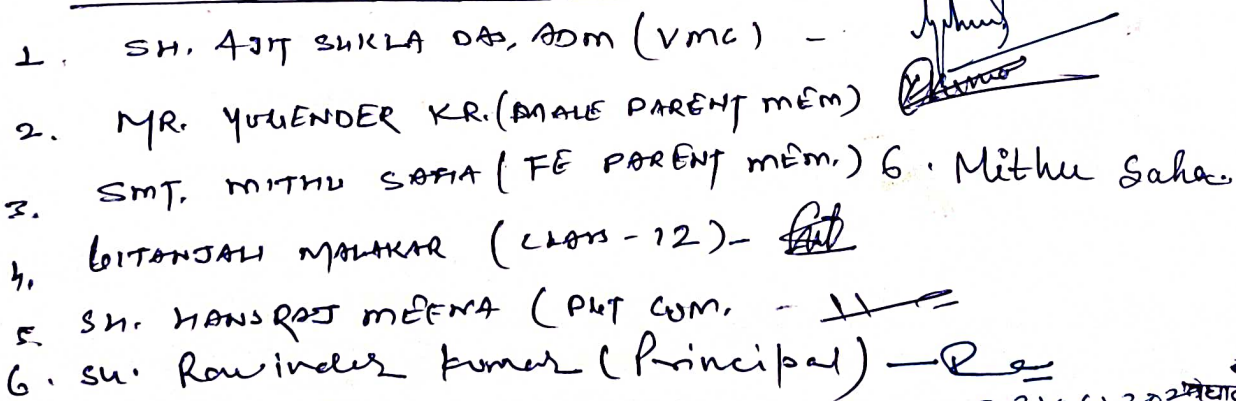 1. SH. AJIT SUKLA DAS, ADM (VMC) -
2. MR. YUGENDER KR. (MALE PARENT MEM)
3. SMT. MITHU SAHA (FE PARENT MEM.) 6. Mithu Saha
4. GITANJALI MALAKAR (CLASS-12)-
5 SH. HANSRAJ MEENA (PGT COM. -
6. SH. Rawinder Kumar (Principal) -